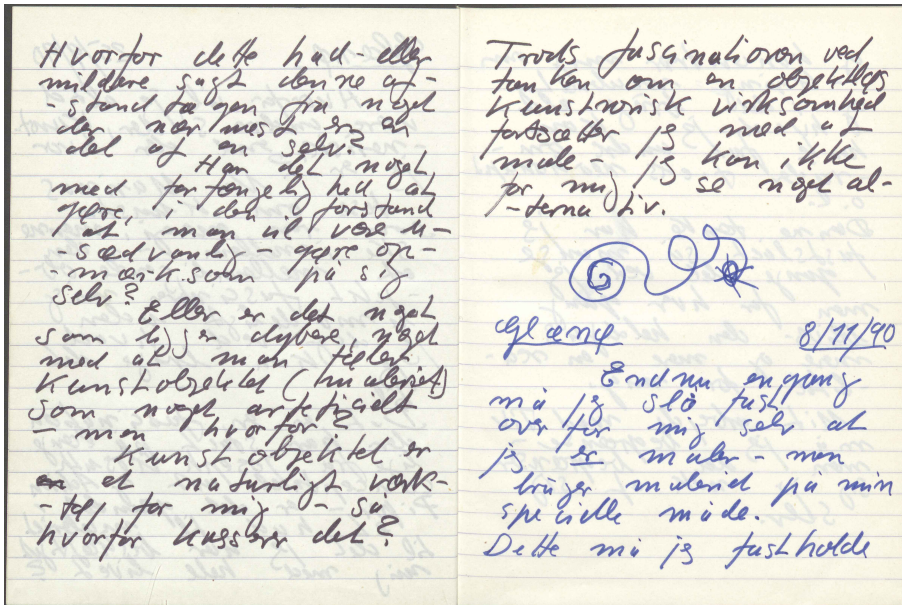 Hvorfor dette had - eller
mildere sagt denne af-
-standtagen fra noget
der nærmest er en
del af en selv?
Har det noget
med forfængelighed at
gøre, i den forstand
at man vil være u-
-sædvanlig - gøre op-
-mærksom på sig
selv?
Eller er det noget
som ligger dybere, noget
med at man føler
Kunstobjektet (maleriet)
som noget artificielt
- men hvorfor?
Kunstobjektet er
et naturligt værk-
-tøj for mig - så
hvorfor kassere det?
Trods fascinationen ved
tanken om en objektløs
Kunstnerisk virksomhed
fortsætter jeg med at
male - jeg kan ikke
for mig se noget al-
-ternativ.
8/11/90
Endnu engang
må jeg slå fast
over for mig selv at
jeg er maler - men
bruger maleriet på min
specielle måde.
Dette må jeg fastholde